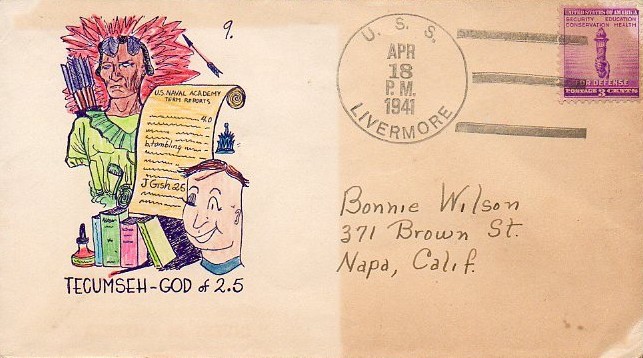 9.
U.S. NAVAL ACADEMY
TERM REPORTS
4.0
b. tambling
J Gish 2.5
TECUMSEH - GOD of 2.5
U. S. S.
APR
18
P.M.
1941
LIVERMORE
UNITED STATES OF AMERICA
SECURITY EDUCATION
CONSERVATION HEALTH
FOR DEFENSE
POSTAGE 3 CENTS
Bonnie Wilson
371 Brown St.
Napa, Calif.